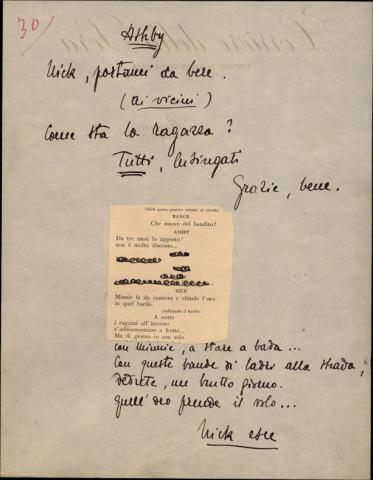 30
Ashby
Nick, portami da bere.
(ai vicini)
Come sta la ragazza?
Tutti, lusingati
Grazie, bene.
(Nick porta quattro whisky al tavolo)
RANCE
Che nuove del bandito?
ASHBY
Da tre mesi lo apposto!
non è molto discosto...
NICK
Minnie fa da cassiera e chiude l'oro
in quel barile.
(indicando il barile)
A notte
i ragazzi all'intorno
s'addormentano a frotte...
Ma di giorno io son solo
con Minnie, a stare a bada...
Con queste bande di ladri alla strada,
vedrete, un brutto giorno.
quell'oro prende il volo...
Nick esce